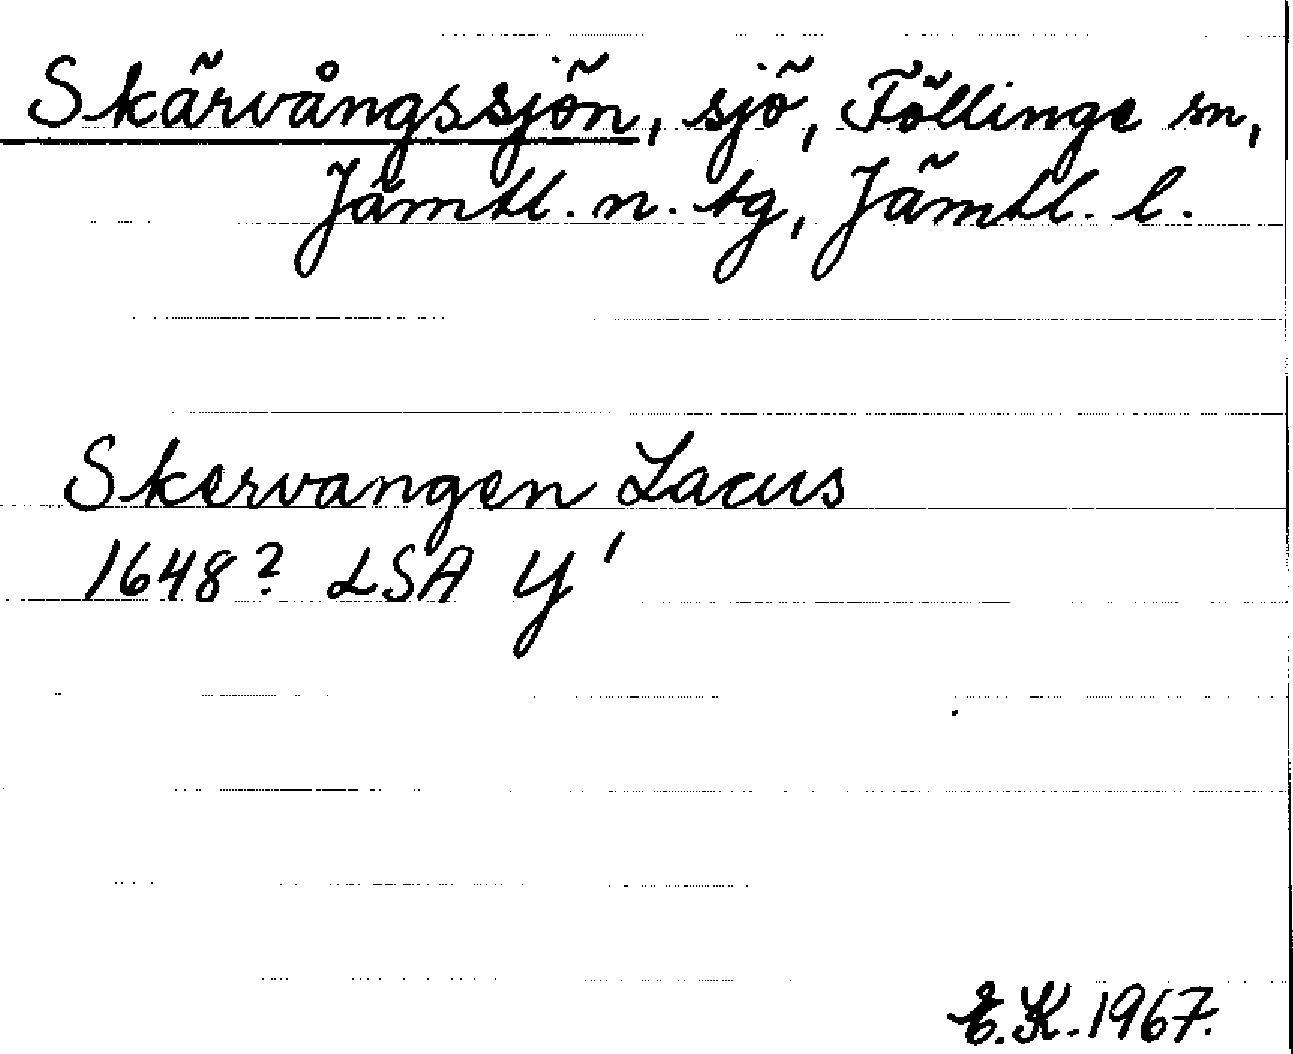 Skärvångssjön, sjö, Föllinge sn,
Jämtl. n. tg, Jämtl. l.
Skervangen Lacus
1648? LSA Y'
E.K. 1967.